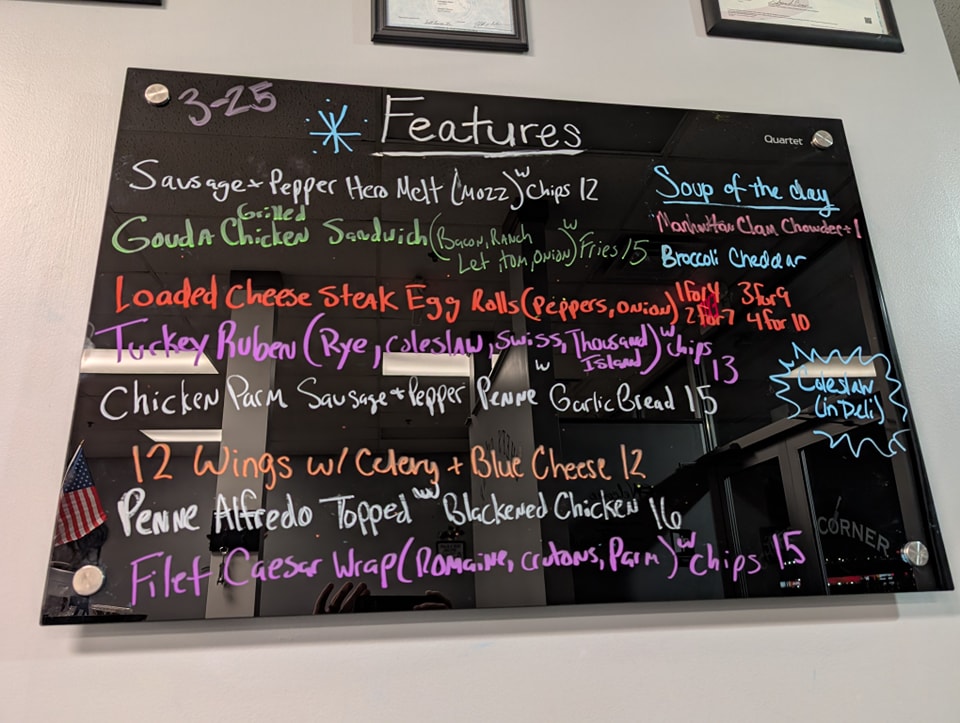 3-25
Features
Quartet
Sausage + Pepper Hero Melt (Mozz) w Chips 12
Gouda Grilled Chicken Sandwich (Bacon, Ranch
Let, Tom, Onion) w Fries 15
Loaded Cheese Steak Egg Rolls (Peppers, onion) 1 for 4 3 for 9
2 for 7 4 for 10
Turkey Ruben (Rye, coleslaw, Swiss, Thousand
Island) w chips 13
Chicken Parm Sausage + Pepper Penne w Garlic Bread 15
12 Wings w/ Celery + Blue Cheese 12
Penne Alfredo Topped w Blackened Chicken 16
Filet Caesar Wrap (Romaine, crutons, Parm) w chips 15
Soup of the day
Manhattan Clam Chowder + 1
Broccoli Cheddar
Coleslaw
(in Deli)
CORNER